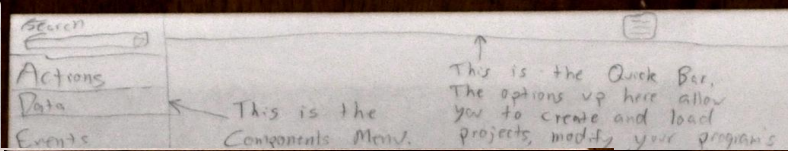 Search
Actions
Data
Events
This is the
Components Menu.
This is the Quick Bar.
The options up here allow
you to create and load
projects, modify your program's